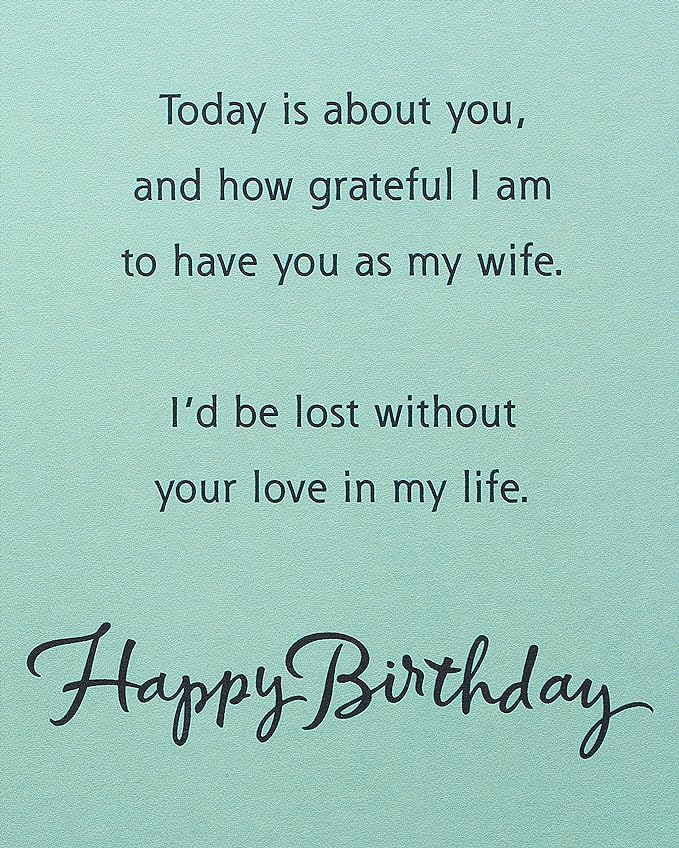 Today is about you,
and how grateful I am
to have you as my wife.
I'd be lost without
your love in my life.
Happy Birthday